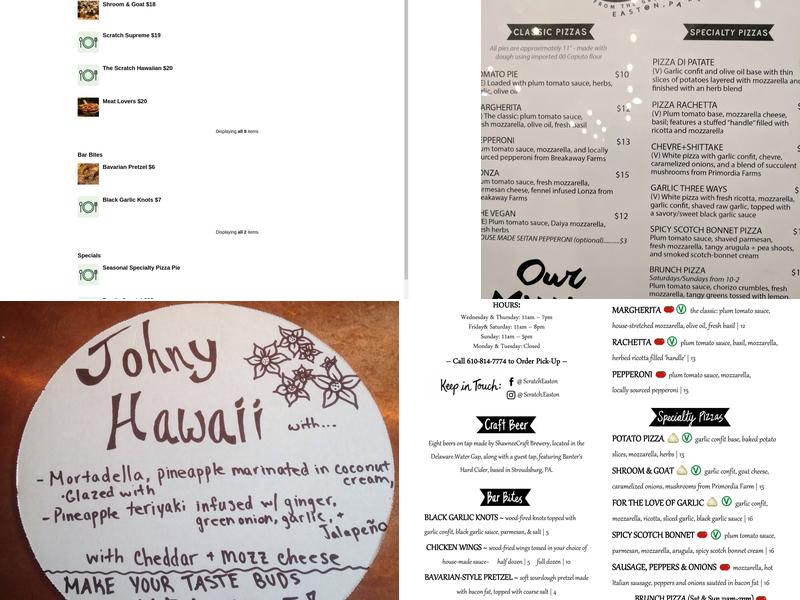 Shroom & Goat $18
Scratch Supreme $19
The Scratch Hawaiian $20
Meat Lovers $20
Displaying all 8 items
Bar Bites
Bavarian Pretzel $6
Black Garlic Knots $7
Displaying all 2 items
Specials
Seasonal Specialty Pizza Pie
EASTON, PA
CLASSIC PIZZAS
All pies are approximately 11" - made with
dough using imported 00 Caputo flour
OMATO PIE $10
E) Loaded with plum tomato sauce, herbs,
rlic, olive oil
ARGHERITA
) The classic: plum tomato sauce,
esh mozzarella, olive oil, fresh basil
EPPERONI $13
um tomato sauce, mozzarella, and locally
urced pepperoni from Breakaway Farms
ONZA $15
um tomato sauce, fresh mozzarella,
rmesan cheese, fennel infused Lonza from
eakaway Farms
HE VEGAN $12
E) Plum tomato sauce, Daiya mozzarella,
esh herbs
OUSE MADE SEITAN PEPPERONI (optional).......$3
Our
SPECIALTY PIZZAS
PIZZA DI PATATE
(V) Garlic confit and olive oil base with thin
slices of potatoes layered with mozzarella and
finished with an herb blend
PIZZA RACHETTA
(V) Plum tomato base, mozzarella cheese,
basil; features a stuffed "handle" filled with
ricotta and mozzarella
CHEVRE+SHITTAKE
(V) White pizza with garlic confit, chevre,
caramelized onions, and a blend of succulent
mushrooms from Primordia Farms
GARLIC THREE WAYS
(V) White pizza with fresh ricotta, mozzarella,
garlic confit, shaved raw garlic, topped with
a savory/sweet black garlic sauce
SPICY SCOTCH BONNET PIZZA
Plum tomato sauce, shaved parmesan,
fresh mozzarella, tangy arugula + pea shoots,
and smoked scotch-bonnet cream
BRUNCH PIZZA
Saturdays/Sundays from 10-2
Plum tomato sauce, chorizo crumbles, fresh
mozzarella, tangy greens tossed with lemon,
Johny
Hawaii
with...
- Mortadella, pineapple marinated in coconut
cream,
·Glazed with
- Pineapple teriyaki infused w/ ginger,
green onion, garlic, +
Jalapeño
with Cheddar + Mozz cheese
MAKE YOUR TASTE BUDS
HOURS:
Wednesday & Thursday: 11am – 7pm
Friday& Saturday: 11am – 8pm
Sunday: 11am – 5pm
Monday & Tuesday: Closed
-- Call 610-814-7774 to Order Pick-Up --
Keep in Touch:
@ ScratchEaston
@ Scratch.Easton
Craft Beer
Eight beers on tap made by ShawneeCraft Brewery, located in the
Delaware Water Gap, along with a guest tap, featuring Banter's
Hard Cider, based in Stroudsburg, PA.
Bar Bites
BLACK GARLIC KNOTS ~ wood-fired knots topped with
garlic confit, black garlic sauce, parmesan, & salt | 5
CHICKEN WINGS ~ wood-fired wings tossed in your choice of
house-made sauce- half dozen | 5 full dozen | 10
BAVARIAN-STYLE PRETZEL ~ soft sourdough pretzel made
with bacon fat, topped with coarse salt | 4
MARGHERITA V the classic: plum tomato sauce,
house-stretched mozzarella, olive oil, fresh basil | 12
RACHETTA V plum tomato sauce, basil, mozzarella,
herbed ricotta filled 'handle' | 13
PEPPERONI plum tomato sauce, mozzarella,
locally sourced pepperoni | 15
Specialty Pizzas
POTATO PIZZA V garlic confit base, baked potato
slices, mozzarella, herbs | 13
SHROOM & GOAT V garlic confit, goat cheese,
caramelized onions, mushrooms from Primordia Farm | 15
FOR THE LOVE OF GARLIC V garlic confit,
mozzarella, ricotta, sliced garlic, black garlic sauce | 16
SPICY SCOTCH BONNET V plum tomato sauce,
parmesan, mozzarella, arugula, spicy scotch bonnet cream | 16
SAUSAGE, PEPPERS & ONIONS mozzarella, hot
Italian sausage, peppers and onions sautéed in bacon fat | 16
BRUNCH PIZZA (Sat & Sun 11am-2pm)